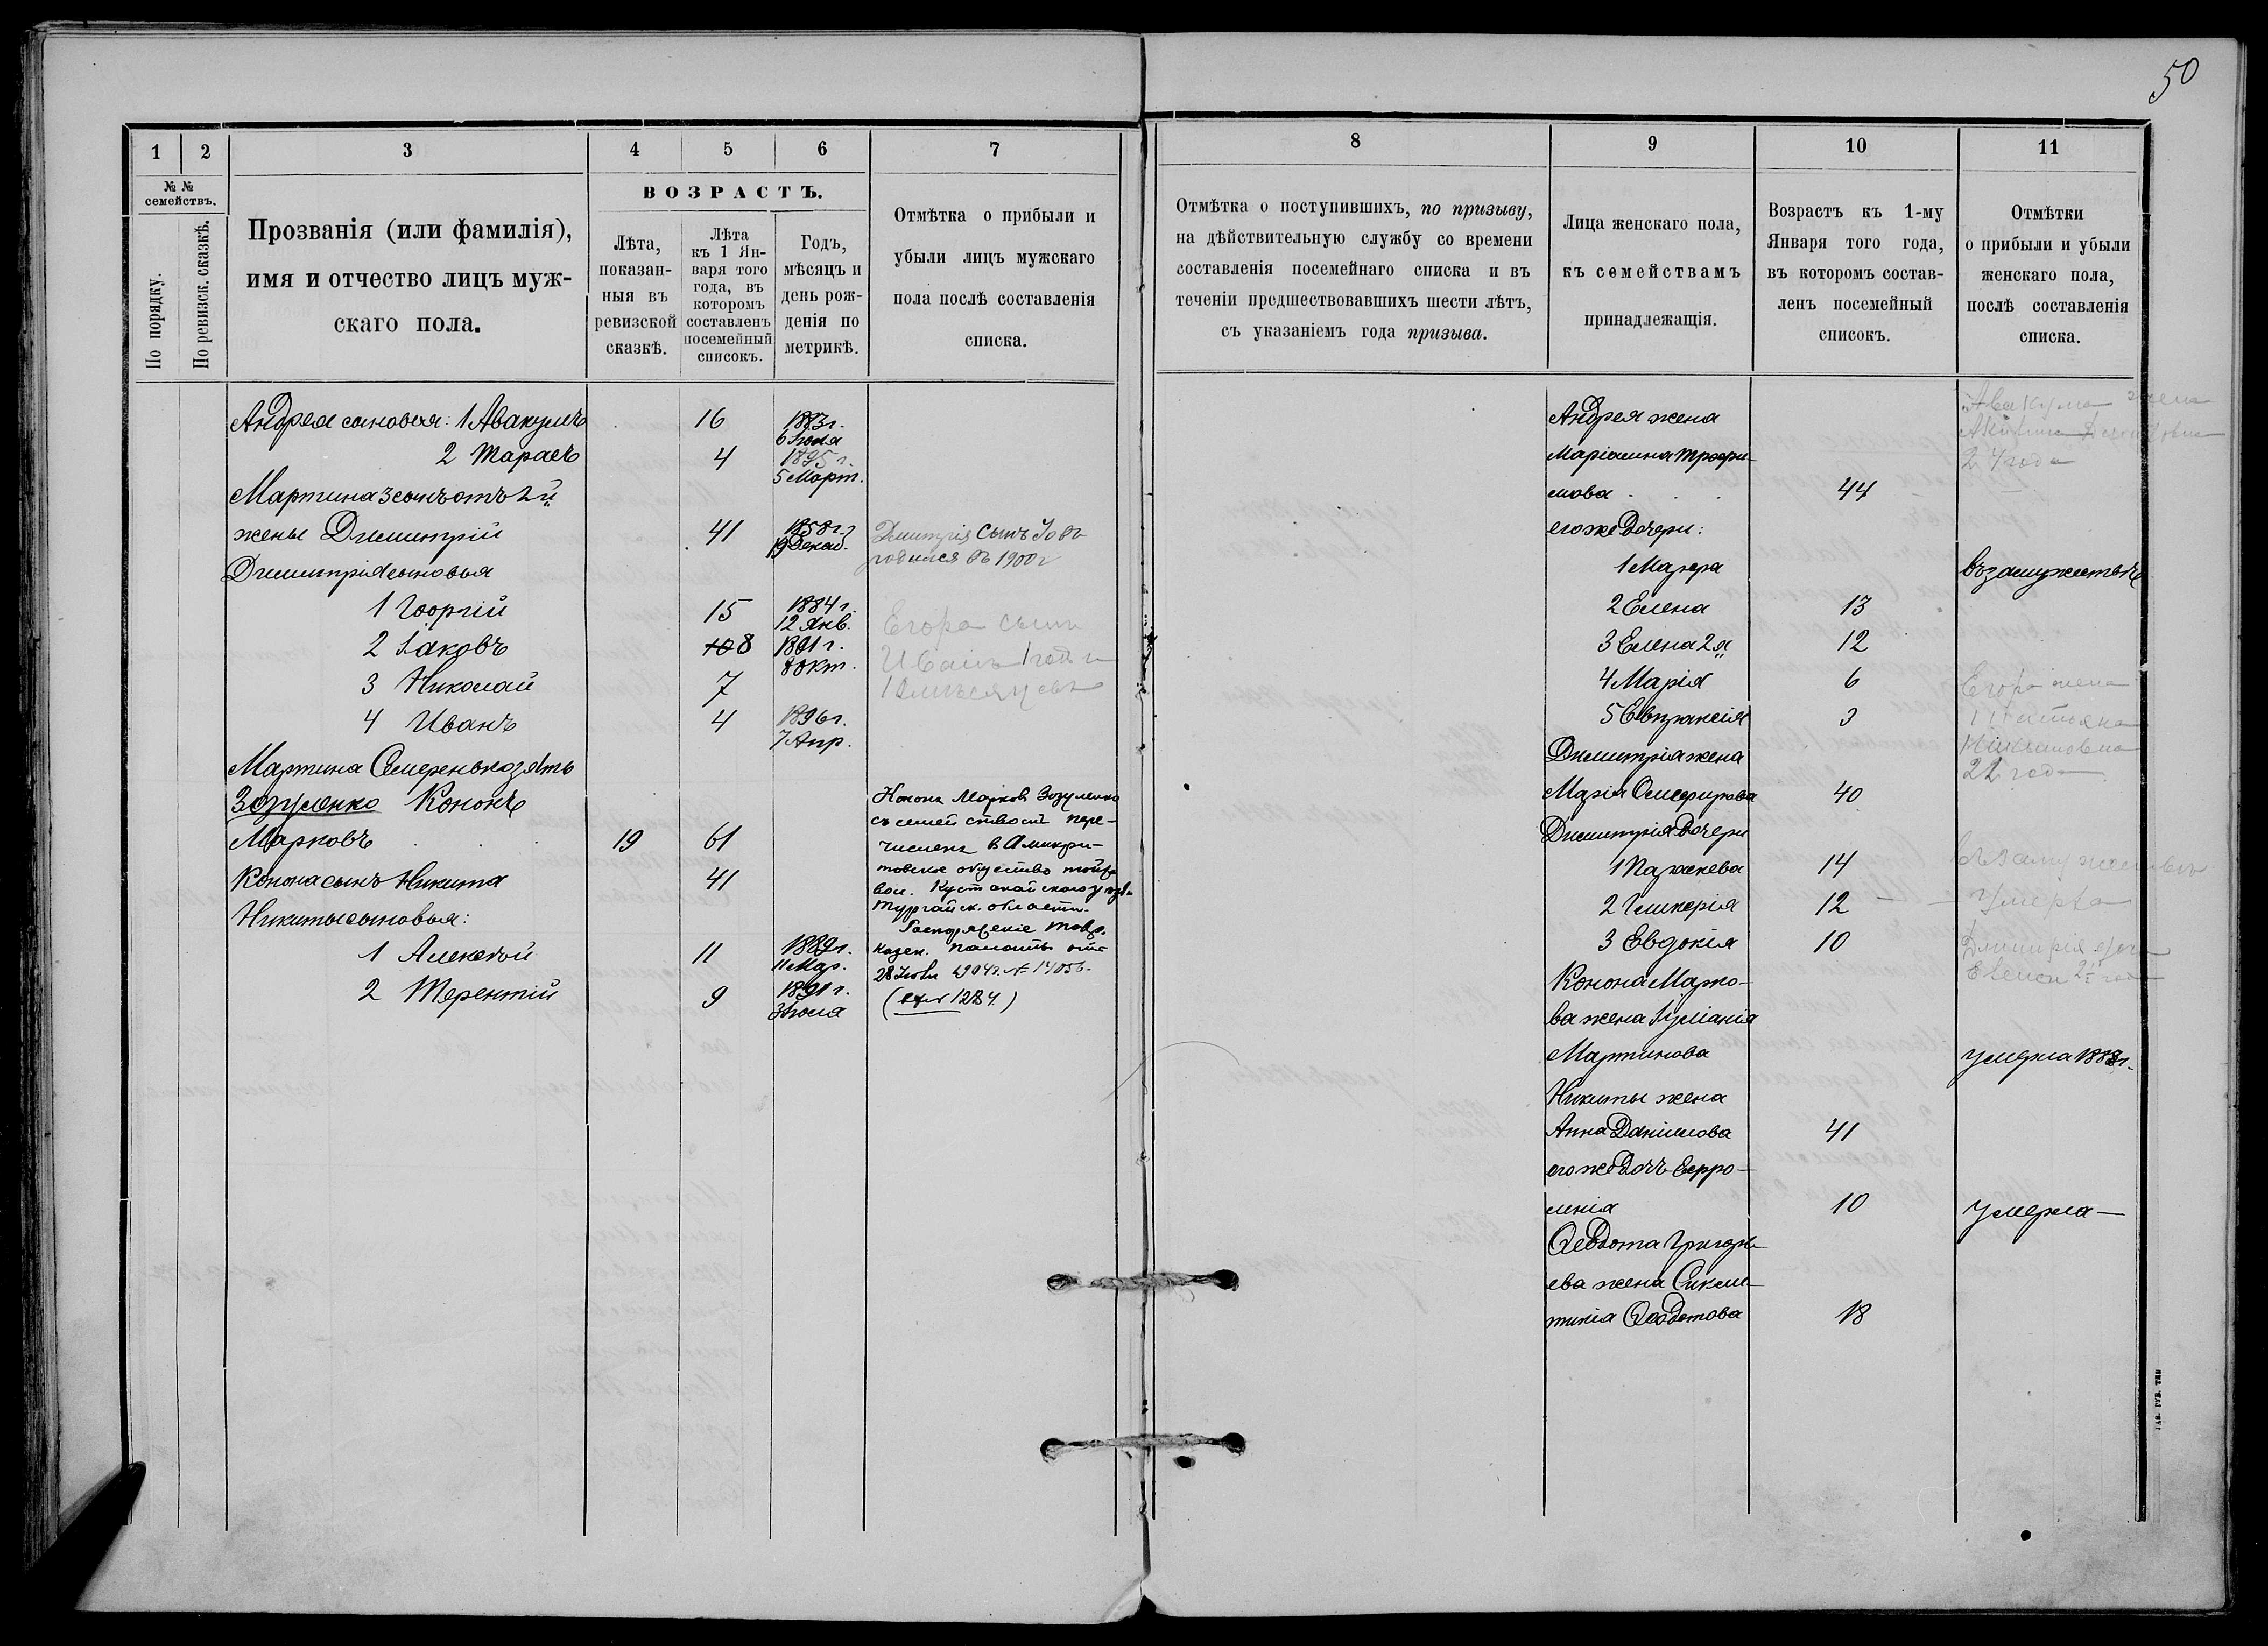 50
1
2
3
4
5
6
7
№ №
семействъ.
По порядку.
По ревизск. сказкѣ.
Прозванія (или фамилія),
имя и отчество лицъ муж-
скаго пола.
ВОЗРАСТЪ.
Лѣта,
показан-
ныя въ
ревизской
сказкѣ.
Лѣта
къ 1 Ян-
варя того
года, въ
которомъ
составленъ
посемейный
списокъ.
Годъ,
мѣсяцъ и
день рож-
денія по
метрикѣ.
Отмѣтка о прибыли и
убыли лицъ мужскаго
пола послѣ составленія
списка.
Андрея сыновья: 1 Авакумъ 16 1883 г.
6 Іюня
2 Тарасъ 4 1895 г.
5 Март.
Мартина 3 сынъ отъ 2й
жены Димитрій 41 1858 г.
19 Декаб.
Дмитрія сынъ
родился въ 1900 г
Димитрія сыновья
1 Георгій 15 1884 г.
12 Янв.
Егора сынъ
2 Іаковъ 10 8 1891 г.
8 Окт.
Иванъ 1 годъ и
3 Николай 7
10 мѣсяцевъ
4 Иванъ 4 1896 г.
7 Апр.
Мартина Семеренько зять
Зозуленко Кононъ
Марковъ 19 61
Конона сынъ Никита 41
Никиты сыновья:
1 Алексѣй 11 1889 г.
11 Мар.
2 Терентій 9 1891 г.
3 Іюля
Кононъ Марковъ Зозуленко
съ семействомъ пере-
численъ въ
товское общество той же
вол. Кустанайскаго уѣзда
Тургайск. области.
Распоряженіе Тавр.
Казен. Палаты отъ
28 1904 г. № 14056.
1284.)
8
9
10
11
Отмѣтка о поступившихъ, по призыву,
на дѣйствительную службу со времени
составленія посемейнаго списка и въ
теченіи предшествовавшихъ шести лѣтъ,
съ указаніемъ года призыва.
Лица женскаго пола,
къ семействамъ
принадлежащія.
Возрастъ къ 1-му
Января того года,
въ которомъ состав-
ленъ посемейный
списокъ.
Отмѣтки
о прибыли и убыли
женскаго пола,
послѣ составленія
списка.
Андрея жена
Маріамна Трофи-
мова 44
Авакума жена
24 года
его же дочери:
1 Марфа въ замужествѣ
2 Елена 13
3 Елена 2я 12
4 Марія 6
5 Евпраксія 3
Егора жена
22 года
Димитрія жена
Марія 40
Димитрія дочери
1 Параскева 14 въ замужествѣ
2 Гликерія 12 Умерла
3 Евдокія 10
Дмитрія дочь
Елена
Конона Марко-
ва жена Іуліанія
Мартинова умерла
Никиты жена
Анна Даніилова 41
его же дочь Евфро-
синія 10 умерла
Ѳеодота Григорь-
ева жена Синкли-
тикія Ѳеодотова 18